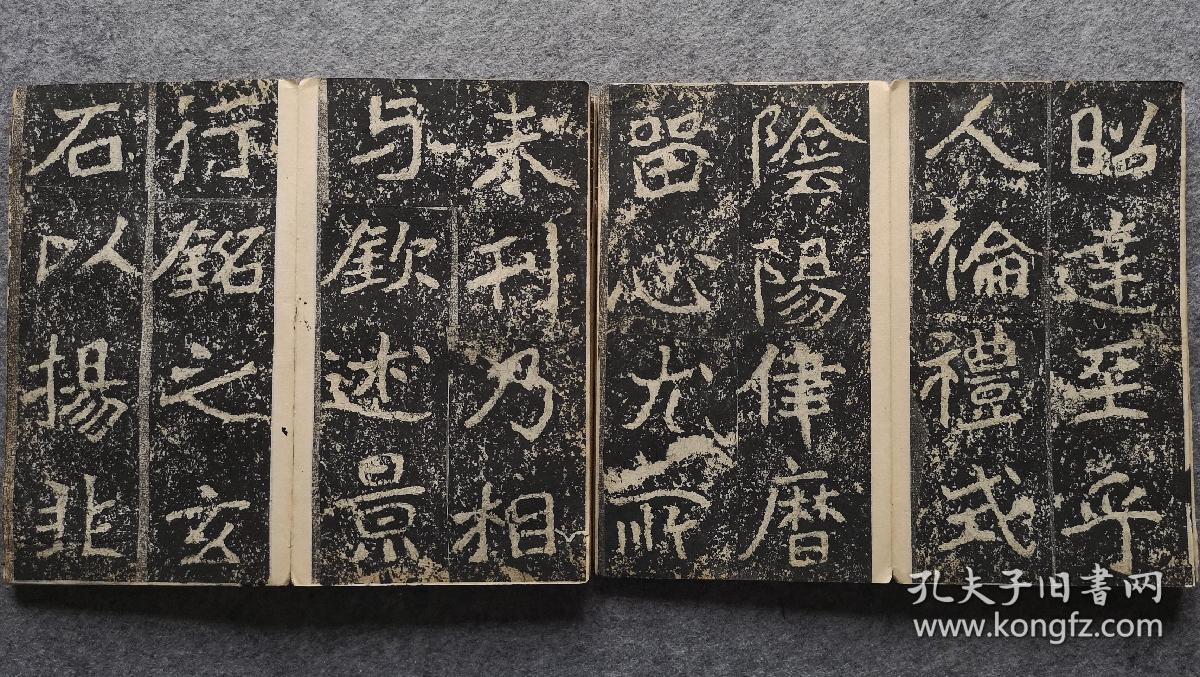 昭達至乎
人倫禮式
陰陽律曆
留心尤所
未刊乃相
与欽述景
行銘之玄
石以揚非
孔夫子旧書网
www.kongfz.com